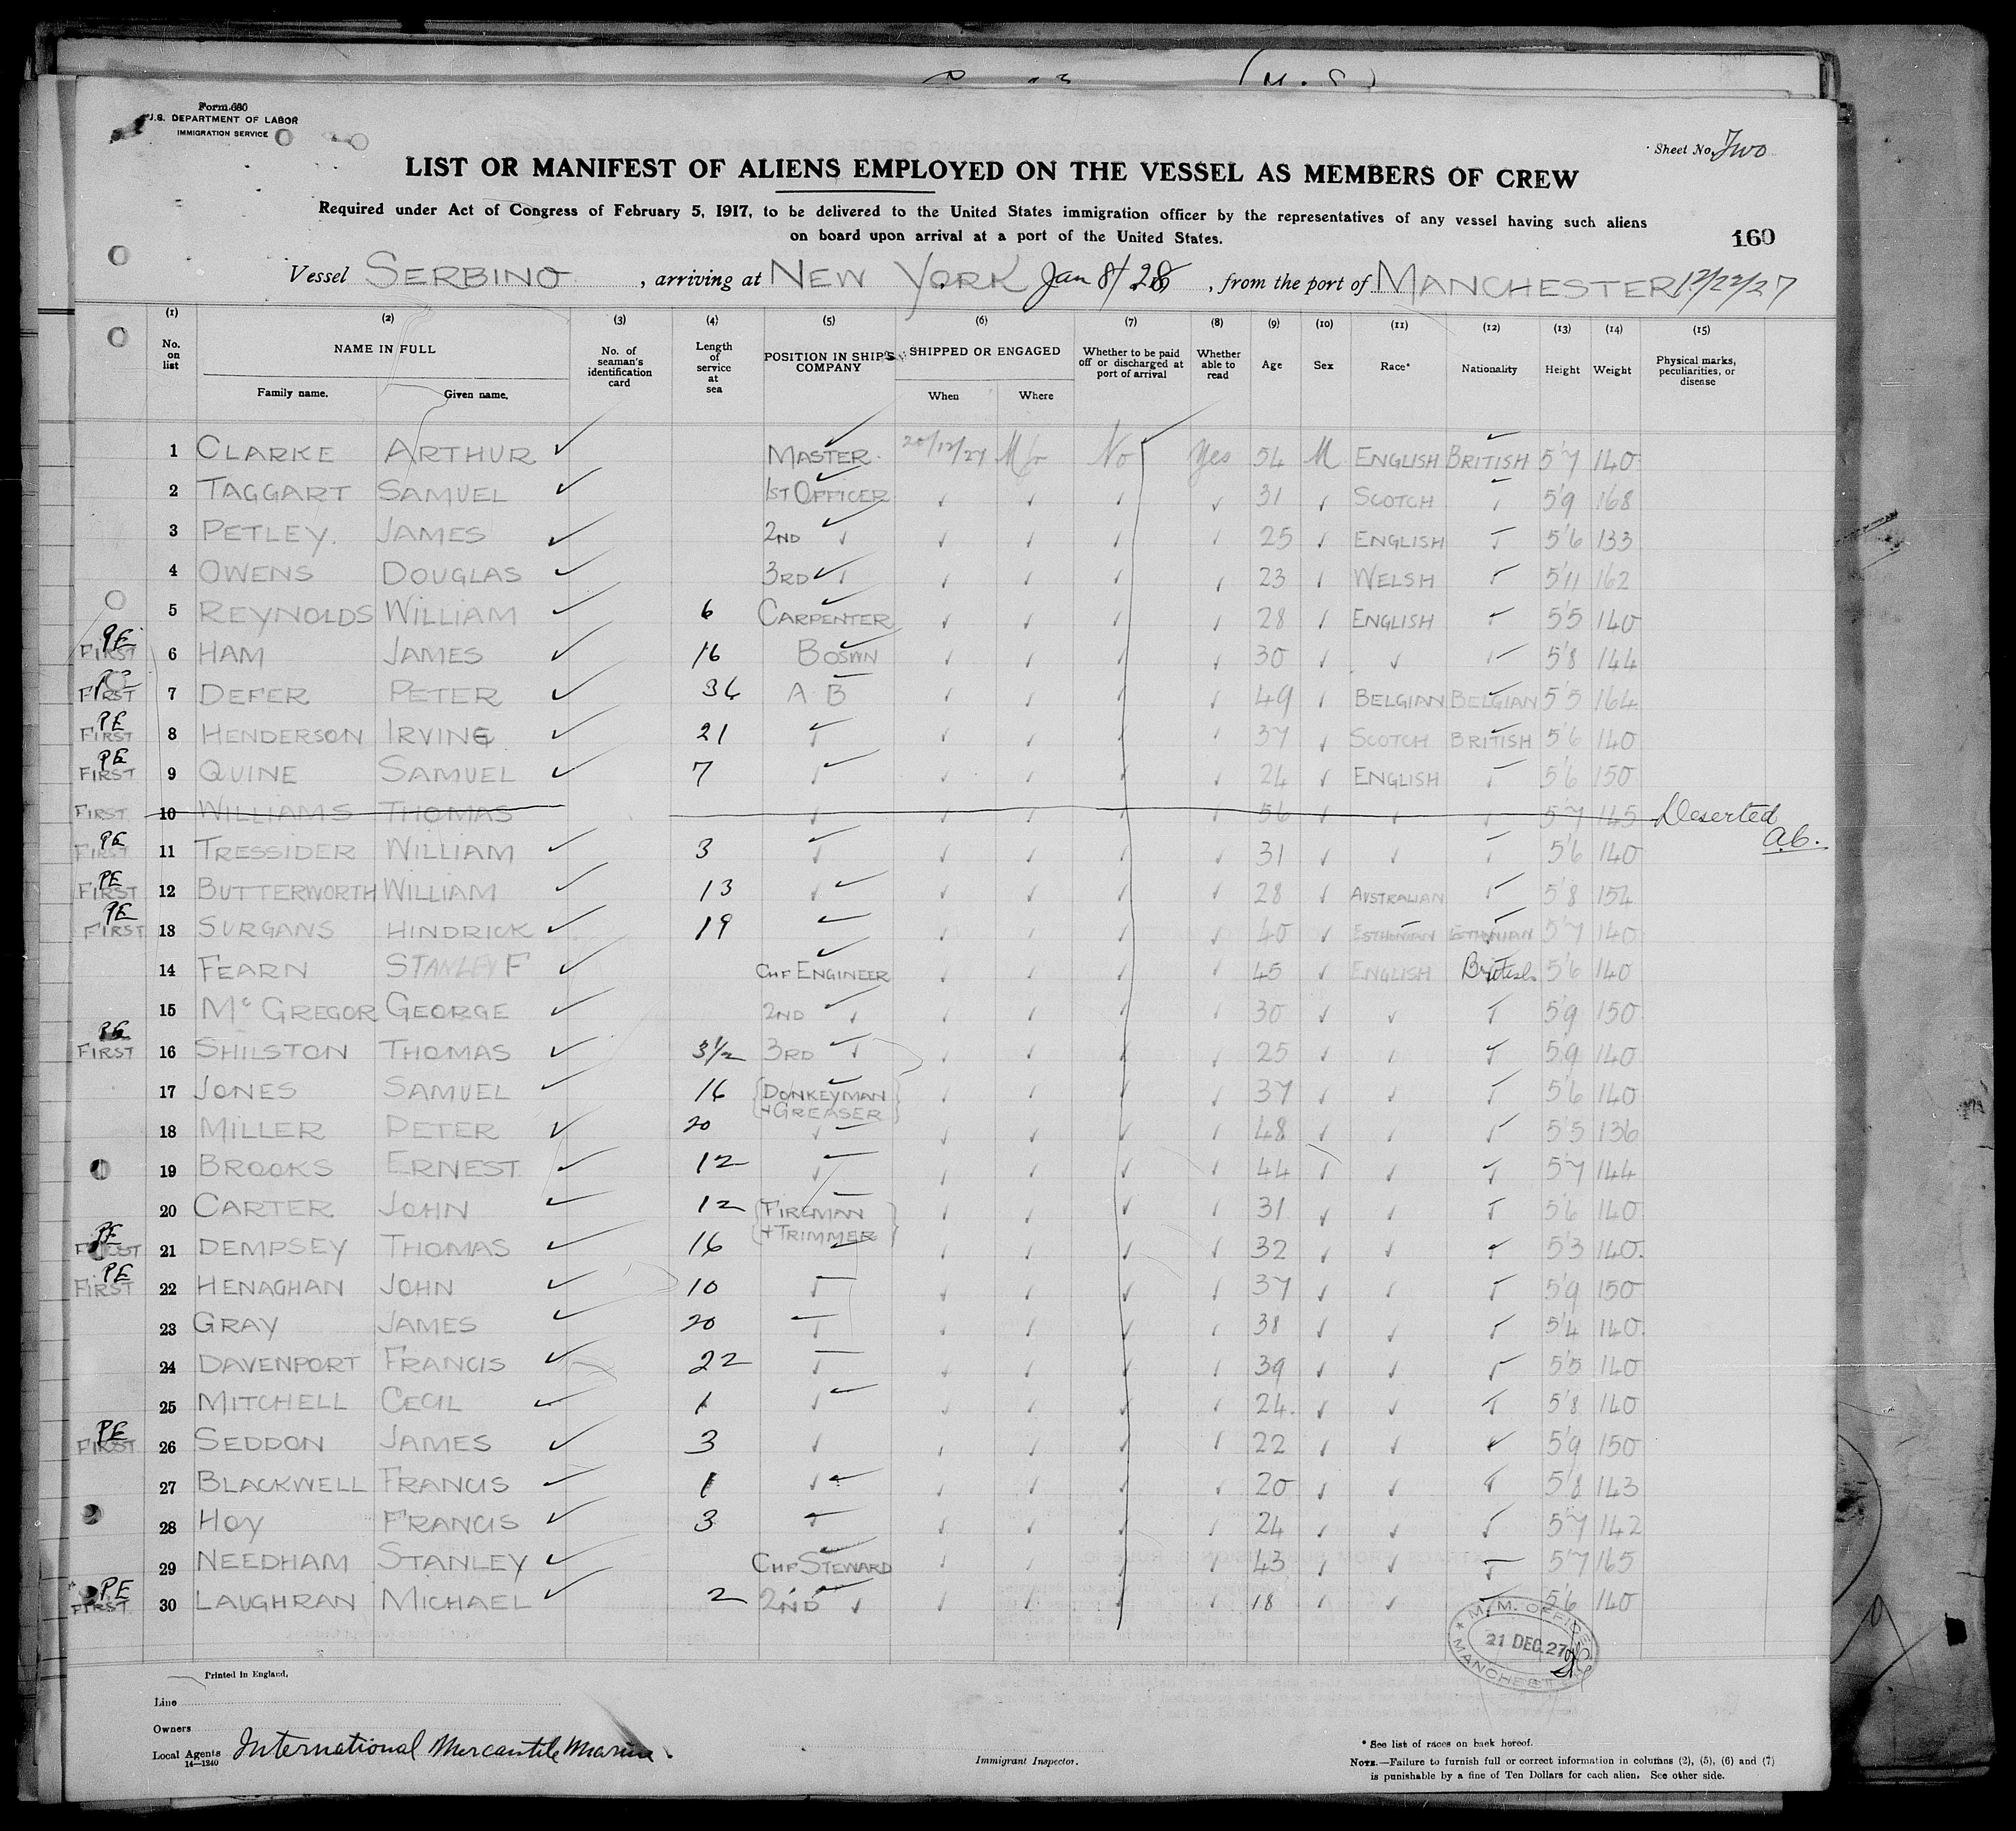 Form 680
U.S. DEPARTMENT OF LABOR
IMMIGRATION SERVICE
Sheet No. Two
LIST OR MANIFEST OF ALIENS EMPLOYED ON THE VESSEL AS MEMBERS OF CREW
Required under Act of Congress of February 5, 1917, to be delivered to the United States immigration officer by the representatives of any vessel having such aliens
on board upon arrival at a port of the United States.
160
Vessel SERBINO, arriving at NEW YORK Jan 8/28, from the port of MANCHESTER 12/22/27
(1) (2) (3) (4) (5) (6) (7) (8) (9) (10) (11) (12) (13) (14) (15)
No. on list NAME IN FULL No. of seaman's identification card Length of service at sea POSITION IN SHIP'S COMPANY SHIPPED OR ENGAGED Whether to be paid off or discharged at port of arrival Whether able to read Age Sex Race* Nationality Height Weight Physical marks, peculiarities, or disease
Family name. Given name. When Where
1 CLARKE ARTHUR ✓ MASTER 20/12/27 M/r No Yes 54 M ENGLISH BRITISH 5'7 140
2 TAGGART SAMUEL ✓ 1ST OFFICER ✓ ✓ ✓ ✓ 31 ✓ SCOTCH ✓ 5'9 168
3 PETLEY. JAMES ✓ 2ND ✓ ✓ ✓ ✓ ✓ 25 ✓ ENGLISH ✓ 5'6 133
4 OWENS DOUGLAS ✓ 3RD ✓ ✓ ✓ ✓ ✓ 23 ✓ WELSH ✓ 5'11 162
5 REYNOLDS WILLIAM ✓ 6 CARPENTER ✓ ✓ ✓ ✓ 28 ✓ ENGLISH ✓ 5'5 140
PE FIRST 6 HAM JAMES ✓ 16 BOSWN ✓ ✓ ✓ ✓ 30 ✓ ✓ ✓ 5'8 144
FIRST 7 DEFER PETER ✓ 36 A B ✓ ✓ ✓ ✓ 49 ✓ BELGIAN BELGIAN 5'5 164
PE FIRST 8 HENDERSON IRVING ✓ 21 ✓ ✓ ✓ ✓ ✓ 37 ✓ SCOTCH BRITISH 5'6 140
PE FIRST 9 QUINE SAMUEL ✓ 7 ✓ ✓ ✓ ✓ ✓ 24 ✓ ENGLISH ✓ 5'6 150
FIRST 10 WILLIAMS THOMAS ✓ ✓ ✓ ✓ ✓ 56 ✓ ✓ ✓ 5'7 145 Deserted
a.b.
PE FIRST 11 TRESSIDER WILLIAM ✓ 3 ✓ ✓ ✓ ✓ ✓ 31 ✓ ✓ ✓ 5'6 140
PE FIRST 12 BUTTERWORTH WILLIAM ✓ 13 ✓ ✓ ✓ ✓ ✓ 28 ✓ AUSTRALIAN ✓ 5'8 154
PE FIRST 13 SURGANS HINDRICK ✓ 19 ✓ ✓ ✓ ✓ ✓ 40 ✓ ESTHONIAN ESTHONIAN 5'7 140
14 FEARN STANLEY F ✓ CHF ENGINEER ✓ ✓ ✓ ✓ 45 ✓ ENGLISH British 5'6 140
15 McGREGOR GEORGE ✓ 2ND ✓ ✓ ✓ ✓ ✓ 30 ✓ ✓ ✓ 5'9 150
PE FIRST 16 SHILSTON THOMAS ✓ 3½ 3RD ✓ ✓ ✓ ✓ ✓ 25 ✓ ✓ ✓ 5'9 140
17 JONES SAMUEL ✓ 16 DONKEYMAN + GREASER ✓ ✓ ✓ ✓ 37 ✓ ✓ ✓ 5'6 140
18 MILLER PETER ✓ 20 ✓ ✓ ✓ ✓ ✓ 48 ✓ ✓ ✓ 5'5 136
19 BROOKS ERNEST ✓ 12 ✓ ✓ ✓ ✓ ✓ 44 ✓ ✓ ✓ 5'7 144
20 CARTER JOHN ✓ 12 FIREMAN + TRIMMER ✓ ✓ ✓ ✓ 31 ✓ ✓ ✓ 5'6 140
PE FIRST 21 DEMPSEY THOMAS ✓ 16 ✓ ✓ ✓ ✓ 32 ✓ ✓ ✓ 5'3 140.
PE FIRST 22 HENAGHAN JOHN ✓ 10 ✓ ✓ ✓ ✓ ✓ 37 ✓ ✓ ✓ 5'9 150
23 GRAY JAMES ✓ 20 ✓ ✓ ✓ ✓ ✓ 38 ✓ ✓ ✓ 5'4 140.
24 DAVENPORT FRANCIS ✓ 22 ✓ ✓ ✓ ✓ ✓ 39 ✓ ✓ ✓ 5'5 140
25 MITCHELL CECIL ✓ 1 ✓ ✓ ✓ ✓ ✓ 24. ✓ ✓ ✓ 5'8 140
PE FIRST 26 SEDDON JAMES ✓ 3 ✓ ✓ ✓ ✓ ✓ 22 ✓ ✓ ✓ 5'9 150
27 BLACKWELL FRANCIS ✓ 1 ✓ ✓ ✓ ✓ ✓ 20 ✓ ✓ ✓ 5'8 143
28 HOY FRANCIS ✓ 3 ✓ ✓ ✓ ✓ ✓ 24 ✓ ✓ ✓ 5'7 142
29 NEEDHAM STANLEY ✓ CHF STEWARD ✓ ✓ ✓ ✓ 43 ✓ ✓ ✓ 5'7 165
PE FIRST 30 LAUGHRAN MICHAEL ✓ 2 2ND ✓ ✓ ✓ ✓ ✓ 18 ✓ ✓ ✓ 5'6 140
M.M. OFFICE
21 DEC. 27
MANCHESTER
Printed in England.
Line
Owners
Local Agents International Mercantile Marine.
14—1240
Immigrant Inspector.
* See list of races on back hereof.
NOTE.—Failure to furnish full or correct information in columns (2), (5), (6) and (7)
is punishable by a fine of Ten Dollars for each alien. See other side.